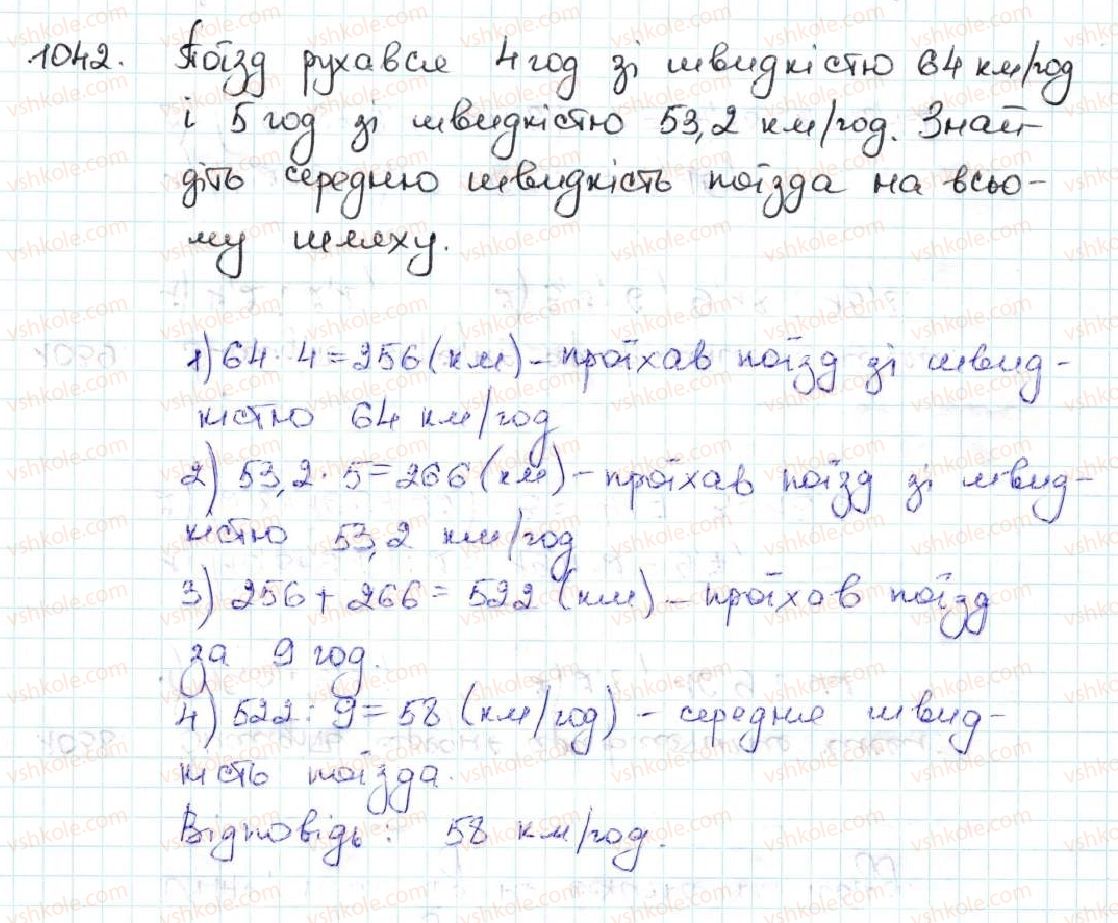 1042. Поїзд рухався 4 год зі швидкістю 64 км/год
і 5 год зі швидкістю 53,2 км/год. Знай-
діть середню швидкість поїзда на всьо-
му шляху.
1) 64 · 4 = 256 (км) – проїхав поїзд зі швид-
кістю 64 км/год
2) 53,2 · 5 = 266 (км) – проїхав поїзд зі швид-
кістю 53,2 км/год
3) 256 + 266 = 522 (км) – проїхав поїзд
за 9 год.
4) 522 : 9 = 58 (км/год) – середня швид-
кість поїзда.
Відповідь: 58 км/год.